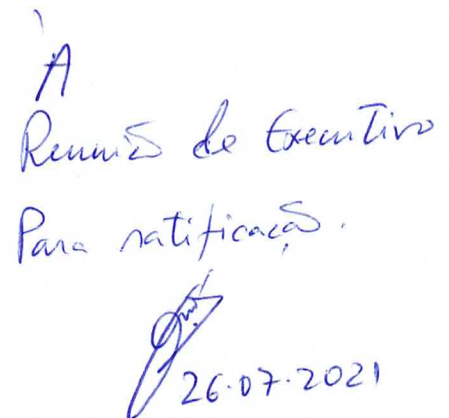 À
Reunião de Executivo
Para ratificação.
26.07.2021